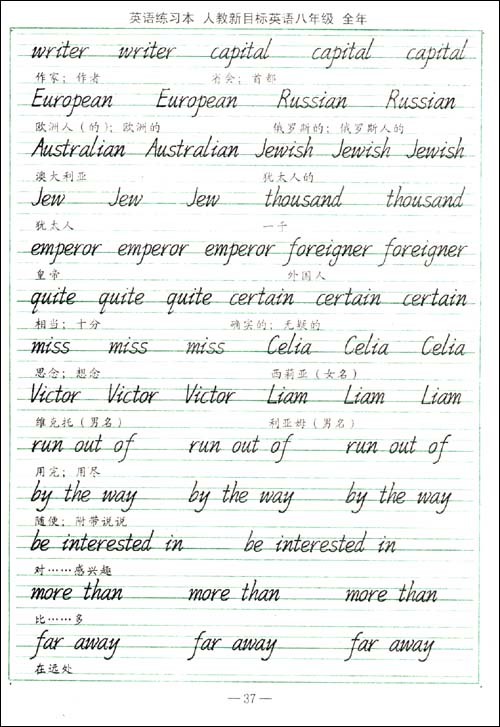 英语练习本 人教新目标英语八年级 全年
writer writer capital capital capital
作家；作者 省会；首都
European European Russian Russian
欧洲人（的）；欧洲的 俄罗斯的；俄罗斯人的
Australian Australian Jewish Jewish Jewish
澳大利亚 犹太人的
Jew Jew Jew thousand thousand
犹太人 一千
emperor emperor emperor foreigner foreigner
皇帝 外国人
quite quite quite certain certain certain
相当；十分 确实的；无疑的
miss miss miss Celia Celia Celia
思念；想念 西莉亚（女名）
Victor Victor Victor Liam Liam Liam
维克托（男名） 利亚姆（男名）
run out of run out of run out of
用完；用尽
by the way by the way by the way
随便；附带说说
be interested in be interested in
对……感兴趣
more than more than more than
比……多
far away far away far away
在远处
—37—